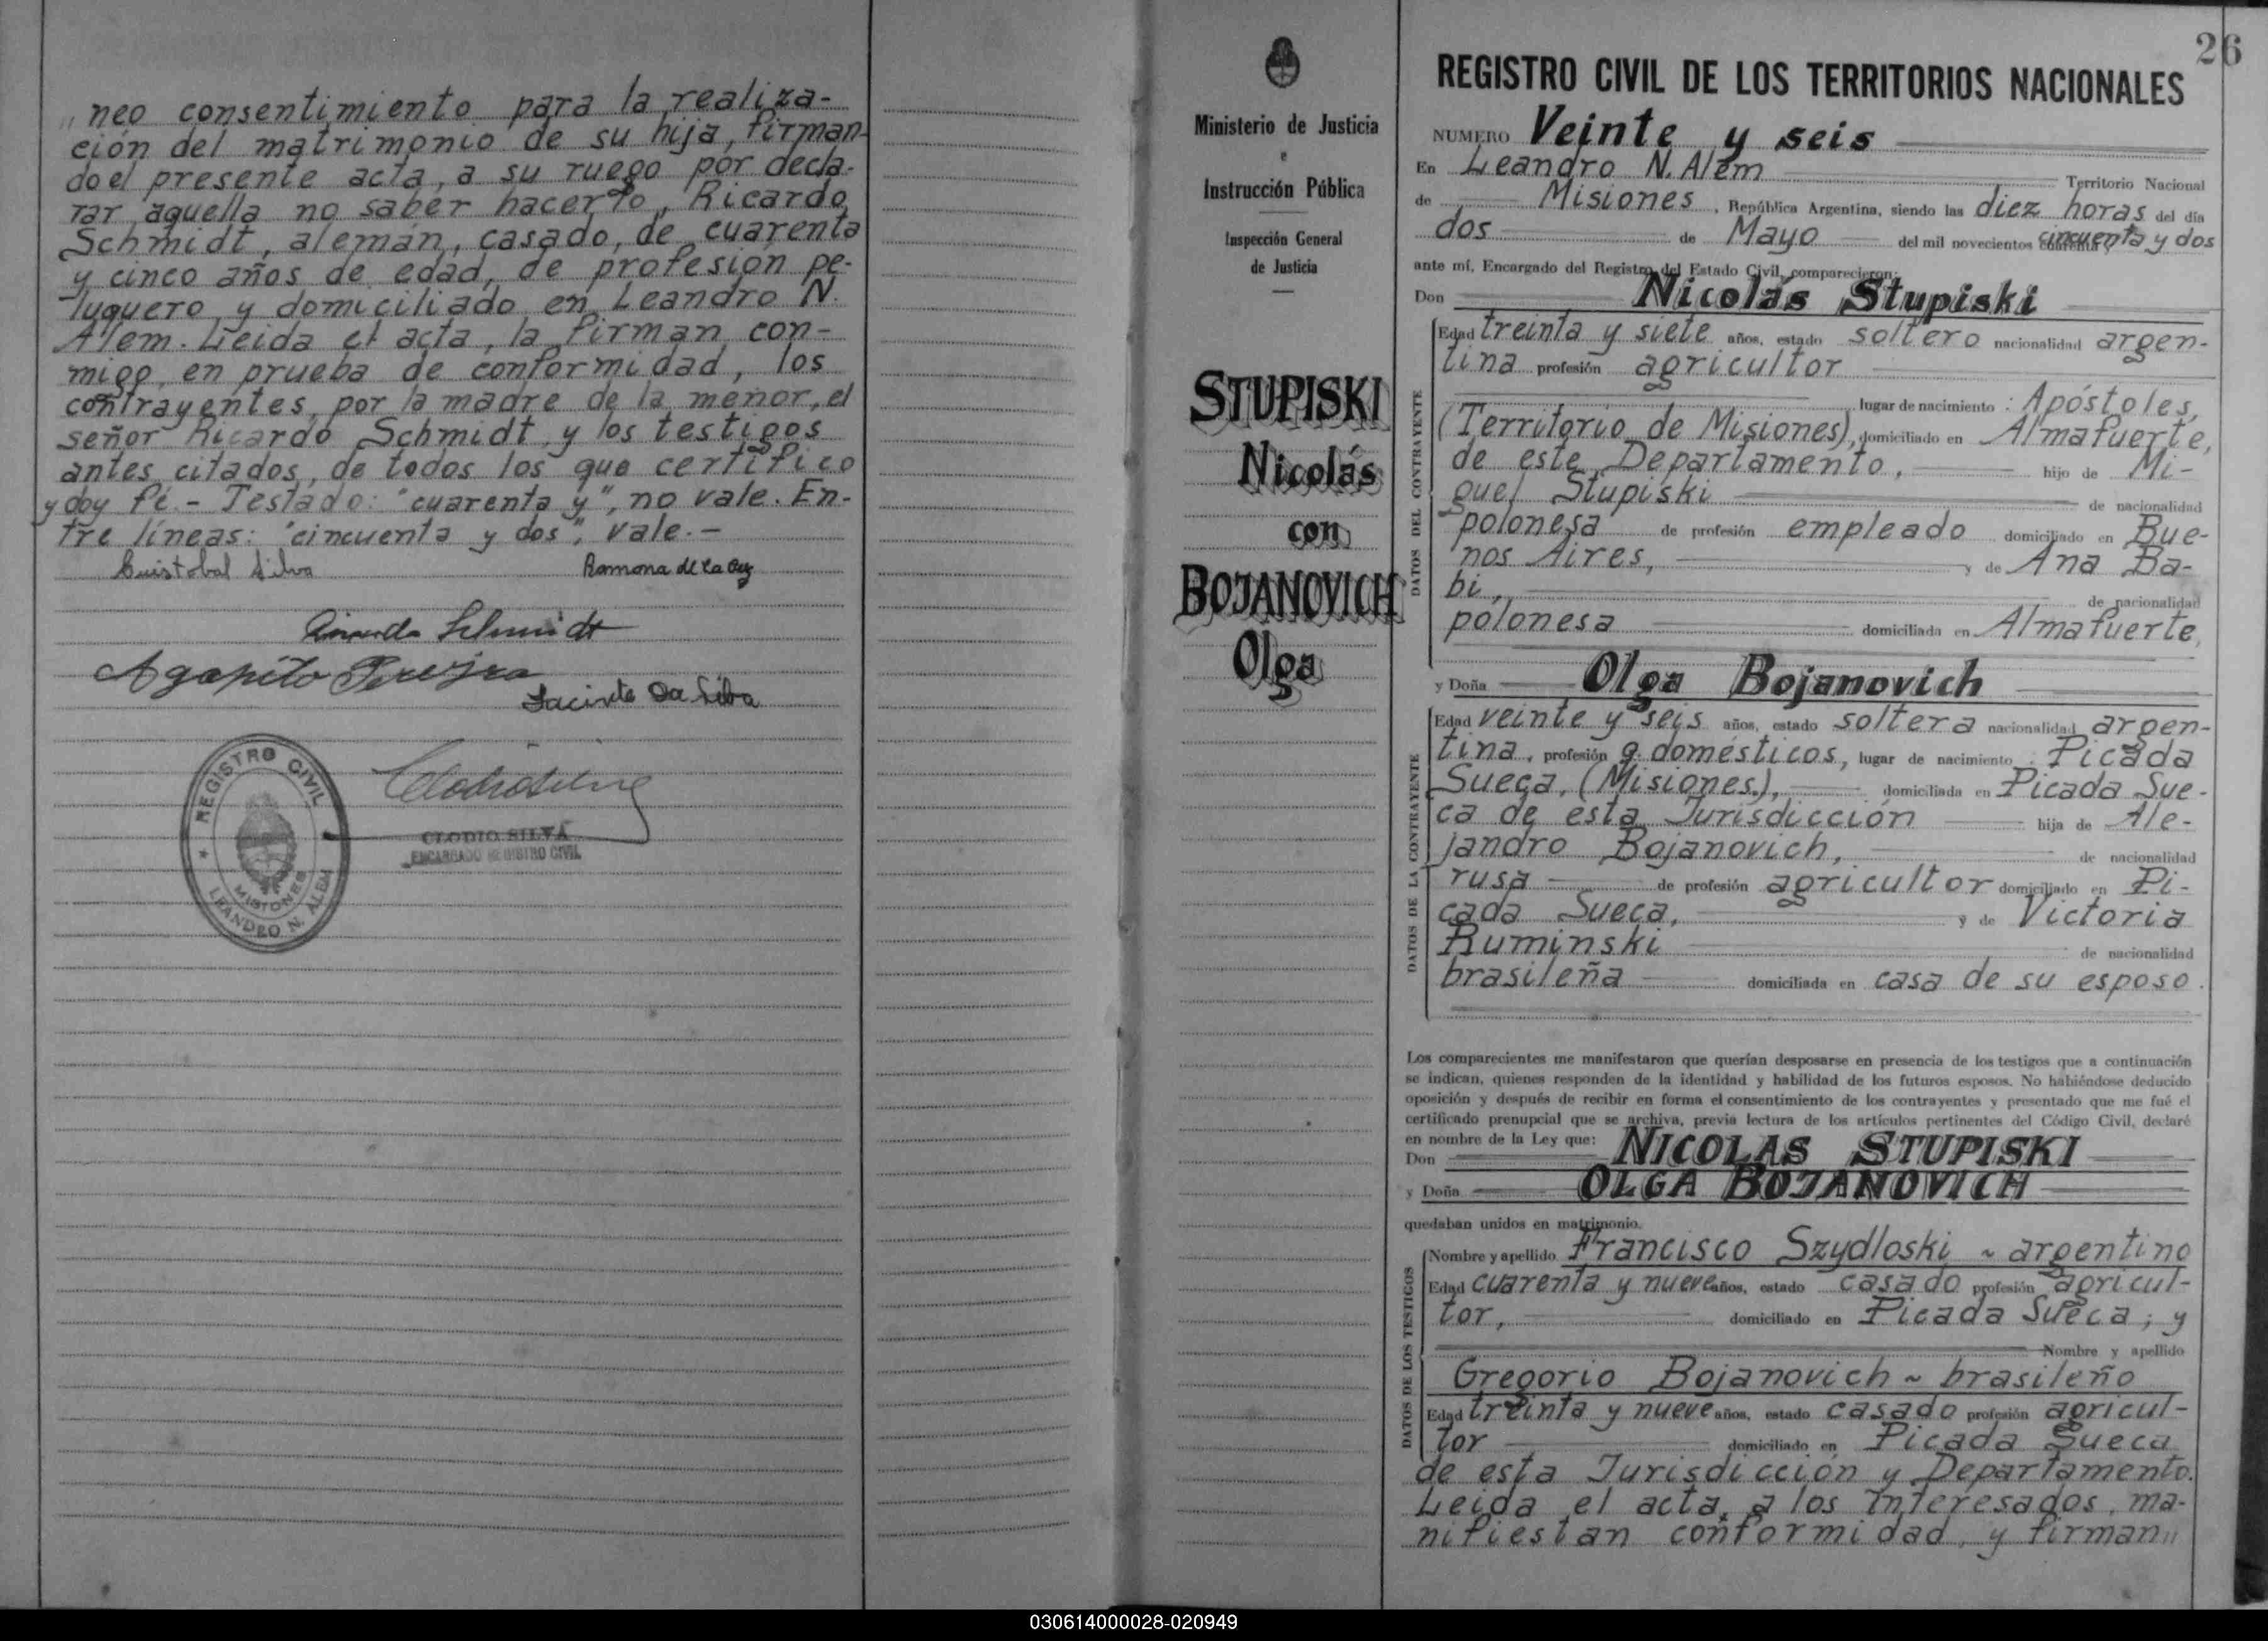 neo consentimiento para la realiza-
ción del matrimonio de su hija, firman-
do el presente acta, a su ruego por decla-
rar aquella no saber hacerlo, Ricardo
Schmidt, alemán, casado, de cuarenta
y cinco años de edad, de profesión pe-
luquero y domiciliado en Leandro N.
Alem. Leida el acta, la firman con-
migo, en prueba de conformidad, los
contrayentes, por la madre de la menor, el
señor Ricardo Schmidt, y los testigos
antes citados, de todos los que certifico
y doy fé.- Testado: "cuarenta y", no vale. En-
tre líneas: "cincuenta y dos", vale.-
Cristobal Silva Ramona de la Cruz
Ricardo Schmidt
Agapito Pereyra
Jacinto Da Silva
REGISTRO CIVIL
MISIONES
LEANDRO N. ALEM
CLODIO SILVA
ENCARGADO REGISTRO CIVIL
Ministerio de Justicia
e
Instrucción Pública
Inspección General
de Justicia
STUPISKI
Nicolás
con
BOJANOVICH
Olga
26
REGISTRO CIVIL DE LOS TERRITORIOS NACIONALES
NUMERO Veinte y seis
En Leandro N. Alem Territorio Nacional
de Misiones, República Argentina, siendo las diez horas del día
dos de Mayo del mil novecientos cuarenta y cincuenta y dos
ante mí, Encargado del Registro del Estado Civil, comparecieron:
Don Nicolás Stupiski
DATOS DEL CONTRAYENTE
Edad treinta y siete años, estado soltero nacionalidad argen-
tina profesión agricultor
lugar de nacimiento: Apóstoles,
(Territorio de Misiones), domiciliado en Almafuerte,
de este Departamento, hijo de Mi-
guel Stupiski de nacionalidad
polonesa de profesión empleado domiciliado en Bue-
nos Aires, y de Ana Ba-
bi, de nacionalidad
polonesa domiciliada en Almafuerte,
y Doña Olga Bojanovich
DATOS DE LA CONTRAYENTE
Edad veinte y seis años, estado soltera nacionalidad argen-
tina, profesión q. domésticos, lugar de nacimiento: Picada
Sueca, (Misiones), domiciliada en Picada Sue-
ca de esta Jurisdicción hija de Ale-
jandro Bojanovich, de nacionalidad
rusa de profesión agricultor domiciliado en Pi-
cada Sueca, y de Victoria
Ruminski de nacionalidad
brasileña domiciliada en casa de su esposo.
Los comparecientes me manifestaron que querían desposarse en presencia de los testigos que a continuación
se indican, quienes responden de la identidad y habilidad de los futuros esposos. No habiéndose deducido
oposición y después de recibir en forma el consentimiento de los contrayentes y presentado que me fué el
certificado prenupcial que se archiva, previa lectura de los artículos pertinentes del Código Civil, declaré
en nombre de la Ley que:
Don NICOLAS STUPISKI
y Doña OLGA BOJANOVICH
quedaban unidos en matrimonio.
DATOS DE LOS TESTIGOS
Nombre y apellido Francisco Szydloski ~ argentino
Edad cuarenta y nueve años, estado casado profesión agricul-
tor, domiciliado en Picada Sueca; y
Nombre y apellido
Gregorio Bojanovich ~ brasileño
Edad treinta y nueve años, estado casado profesión agricul-
tor domiciliado en Picada Sueca
de esta Jurisdicción y Departamento.
Leida el acta, a los interesados, ma-
nifiestan conformidad, y firman,,
030614000028-020949